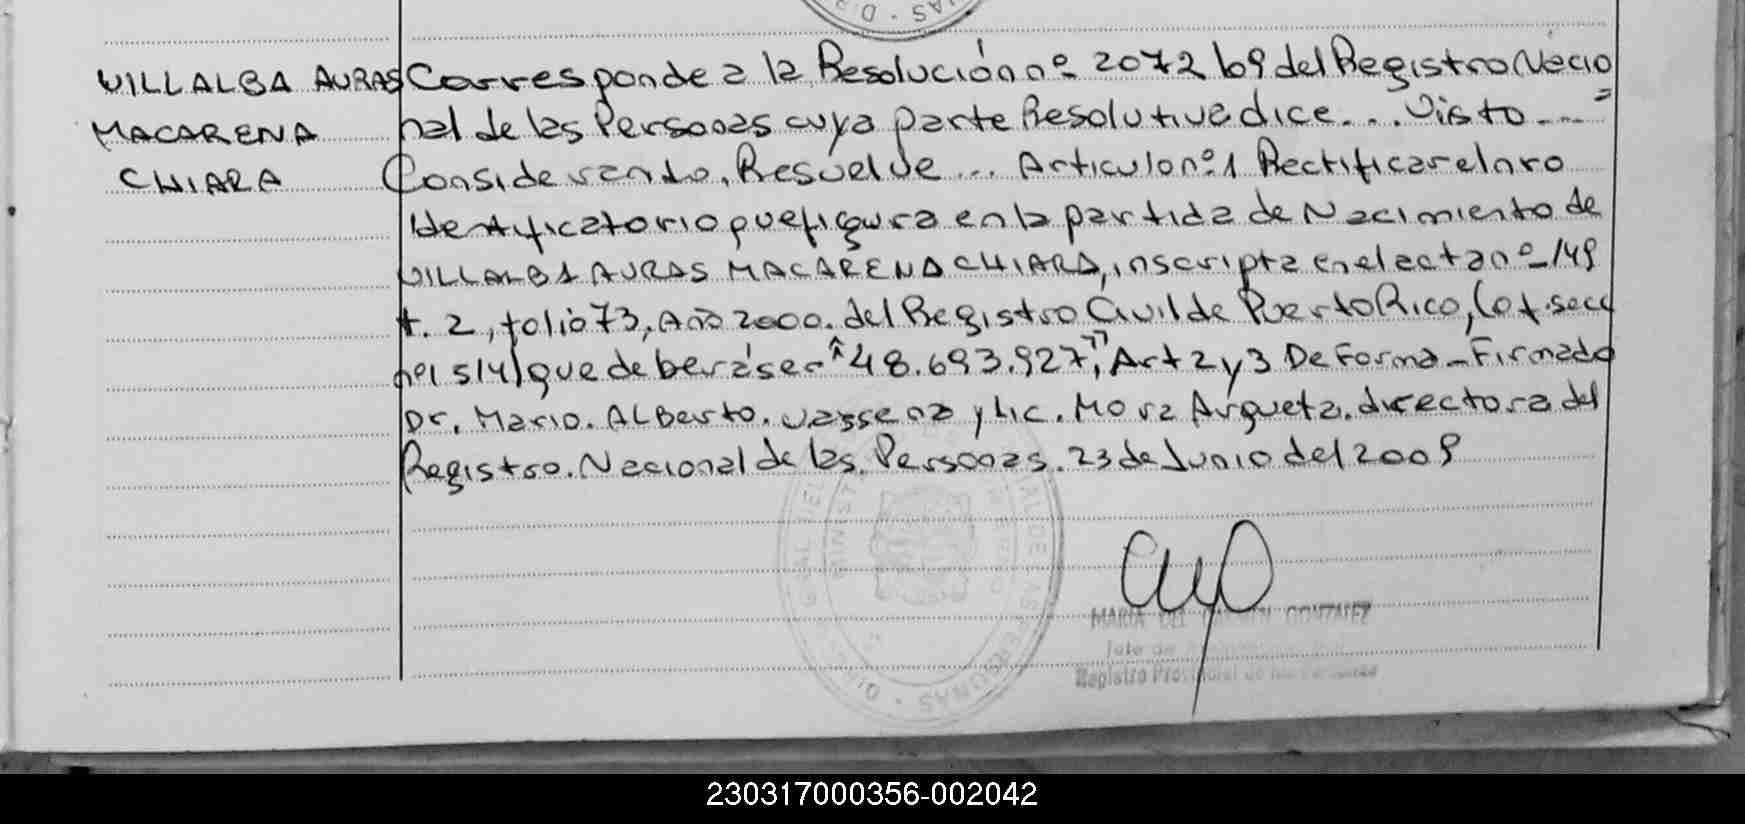 VILLALBA AURAS
MACARENA
CHIARA
Corresponde a la Resolución nº 2072 b9 del Registro Nacio
nal de las Personas cuya parte Resolutiva dice... Visto...
Considerando, Resuelve... Articulo nº 1 Rectificar el nro
Identificatorio que figura en la partida de Nacimiento de
VILLALBA AURAS MACARENA CHIARA, inscripta en el acta nº 149
t. 2, folio 73, Año 2000. del Registro Civil de Puerto Rico, (of. secc
nº 1514) que deberá ser "48.693.927", Art 2 y 3 De Forma - Firmado
Dr. Mario. Alberto. y Lic. Mora Argueta. directora del
Registro. Nacional de las Personas. 23 de Junio del 2009
MARIA DEL CARMEN GONZALEZ
Registro Provincial de las Personas
230317000356-002042